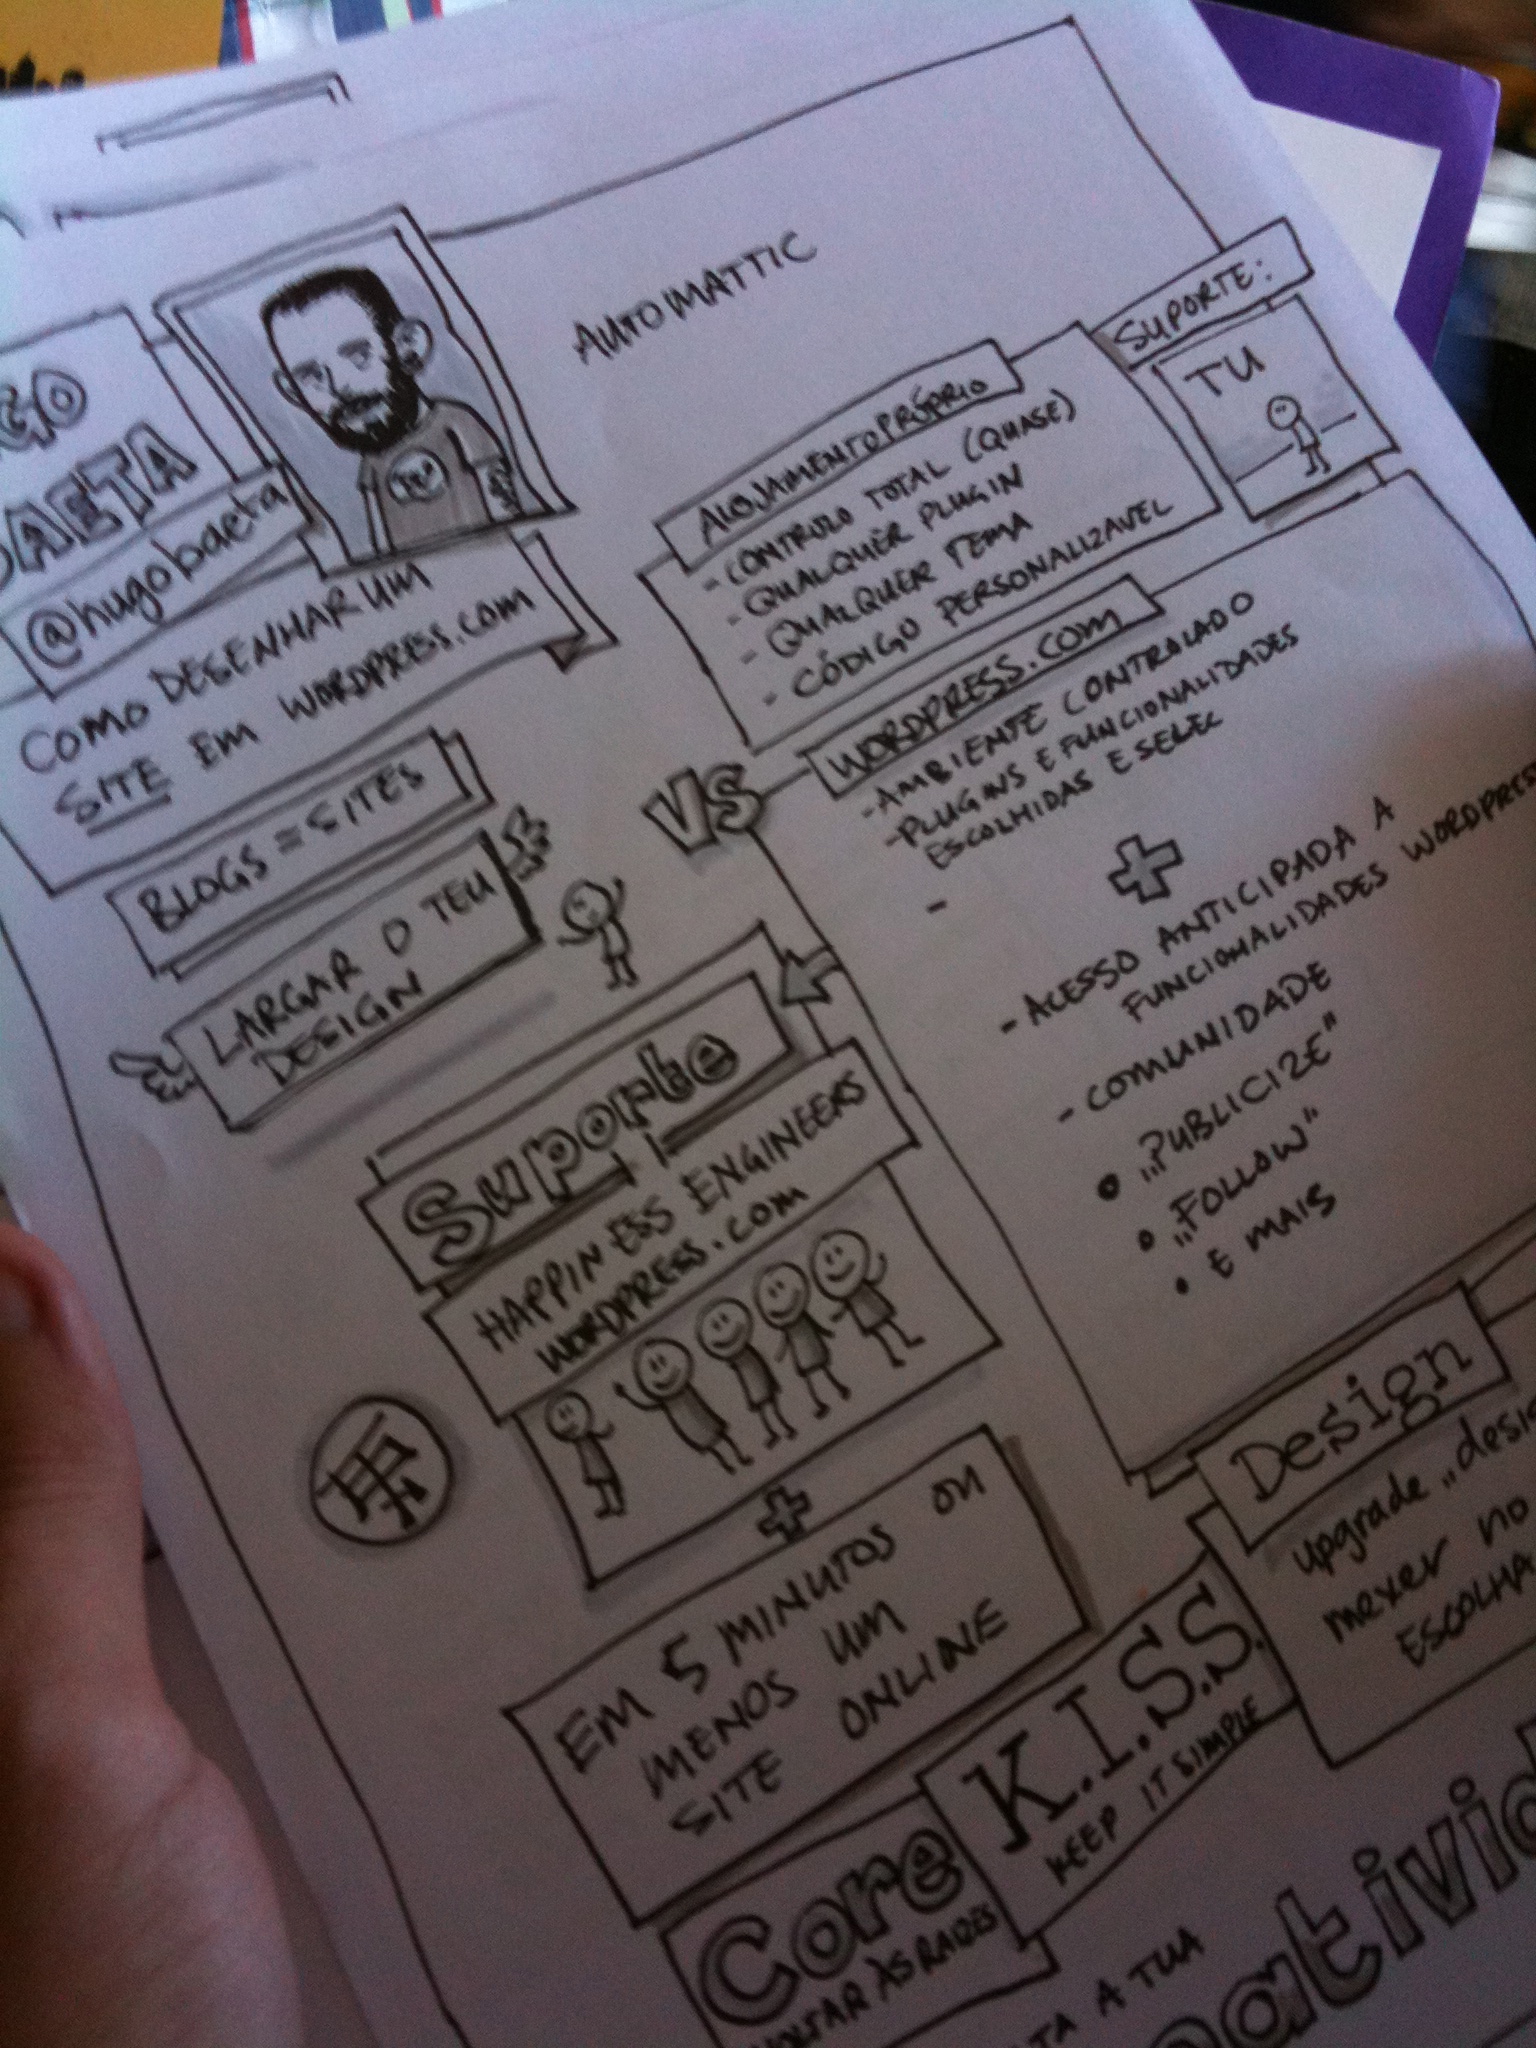 AUTOMATTIC
GO
BAETA
@hugobaeta
COMO DESENHAR UM
SITE EM WORDPRESS.COM
BLOGS = SITES
LARGAR O TEU
DESIGN
VS
SUPORTE:
TU
ALOJAMENTO PRÓPRIO
- CONTROLO TOTAL (QUASE)
- QUALQUER PLUGIN
- QUALQUER TEMA
- CÓDIGO PERSONALIZAVEL
WORDPRESS.COM
- AMBIENTE CONTROLADO
- PLUGINS E FUNCIONALIDADES
ESCOLHIDAS E SELEC
-
+
- ACESSO ANTICIPADA A
FUNCIONALIDADES WORDPRESS
- COMUNIDADE
• „PUBLICIZE"
• „FOLLOW"
• E MAIS
Suporte
HAPPINESS ENGINEERS
WORDPRESS.COM
+
EM 5 MINUTOS OU
MENOS UM
SITE ONLINE
Design
upgrade „desig
mexer no
ESCOLHA
K.I.S.S.
KEEP IT SIMPLE
Core
VOLTAR ÀS RAIZES
TA A TUA
ativid